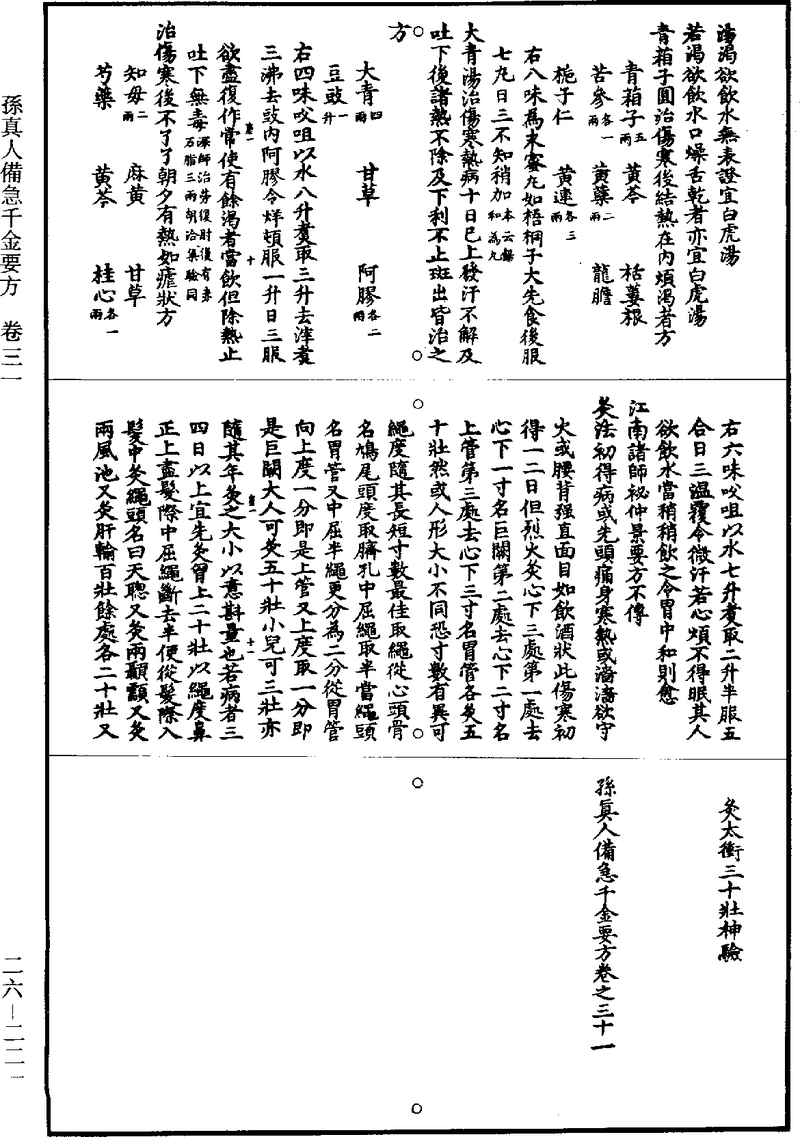 湯渴欲飲水無表證宜白虎湯
若渴欲飲水口燥舌乾者亦宜白虎湯
青葙子圓治傷寒後結熱在內煩渴者方
青葙子五兩 黃芩 栝蔞根
苦參各一兩 黃蘗二兩 龍膽
梔子仁 黃連各三兩
右八味為末蜜丸如梧桐子大先食後服
七丸日三不知稍加本云餳和為丸
大青湯治傷寒熱病十日已上發汗不解及
吐下後諸熱不除及下利不止斑出皆治之
方
大青四兩 甘草 阿膠各二兩
豆豉一升
右四味㕮咀以水八升煮取三升去滓煮
三沸去豉內阿膠令烊頓服一升日三服
欲盡復作常使有餘渴者當飲但除熱止
吐下無毒深師治勞復肘後有赤石脂三兩胡洽集驗同
治傷寒後不了了朝夕有熱如瘧狀方
知母二兩 麻黃 甘草
芍藥 黃芩 桂心各一兩
右六味㕮咀以水七升煮取二升半服五
合日三溫覆令微汗若心煩不得眠其人
欲飲水當稍稍飲之令胃中和則愈
江南諸師祕仲景要方不傳
灸法初得病或先頭痛身寒熱或濇濇欲守
火或腰背强直面目如飲酒狀此傷寒初
得一二日但烈火灸心下三處第一處去
心下一寸名巨闕第二處去心下二寸名
上管第三處去心下三寸名胃管各灸五
十壯然或人形大小不同恐寸數有異可
繩度隨其長短寸數最佳取繩從心頭骨
名鳩尾頭度取臍孔中屈繩取半當繩頭
名胃管又中屈半繩更分為二分從胃管
向上度一分即是上管又上度取一分即
是巨闕大人可灸五十壯小兒可三壯亦
隨其年灸之大小以意斟量也若病者三
四日以上宜先灸胷上二十壯以繩度鼻
正上盡髮際中屈繩斷去半便從髮際入
髮中灸繩頭名曰天聰又灸兩顳顬又灸
兩風池又灸肝輸百壯餘處各二十壯又
灸太衝三十壯神驗
孫真人備急千金要方卷之三十一
孫真人備急千金要方 卷三一
二六—二二一